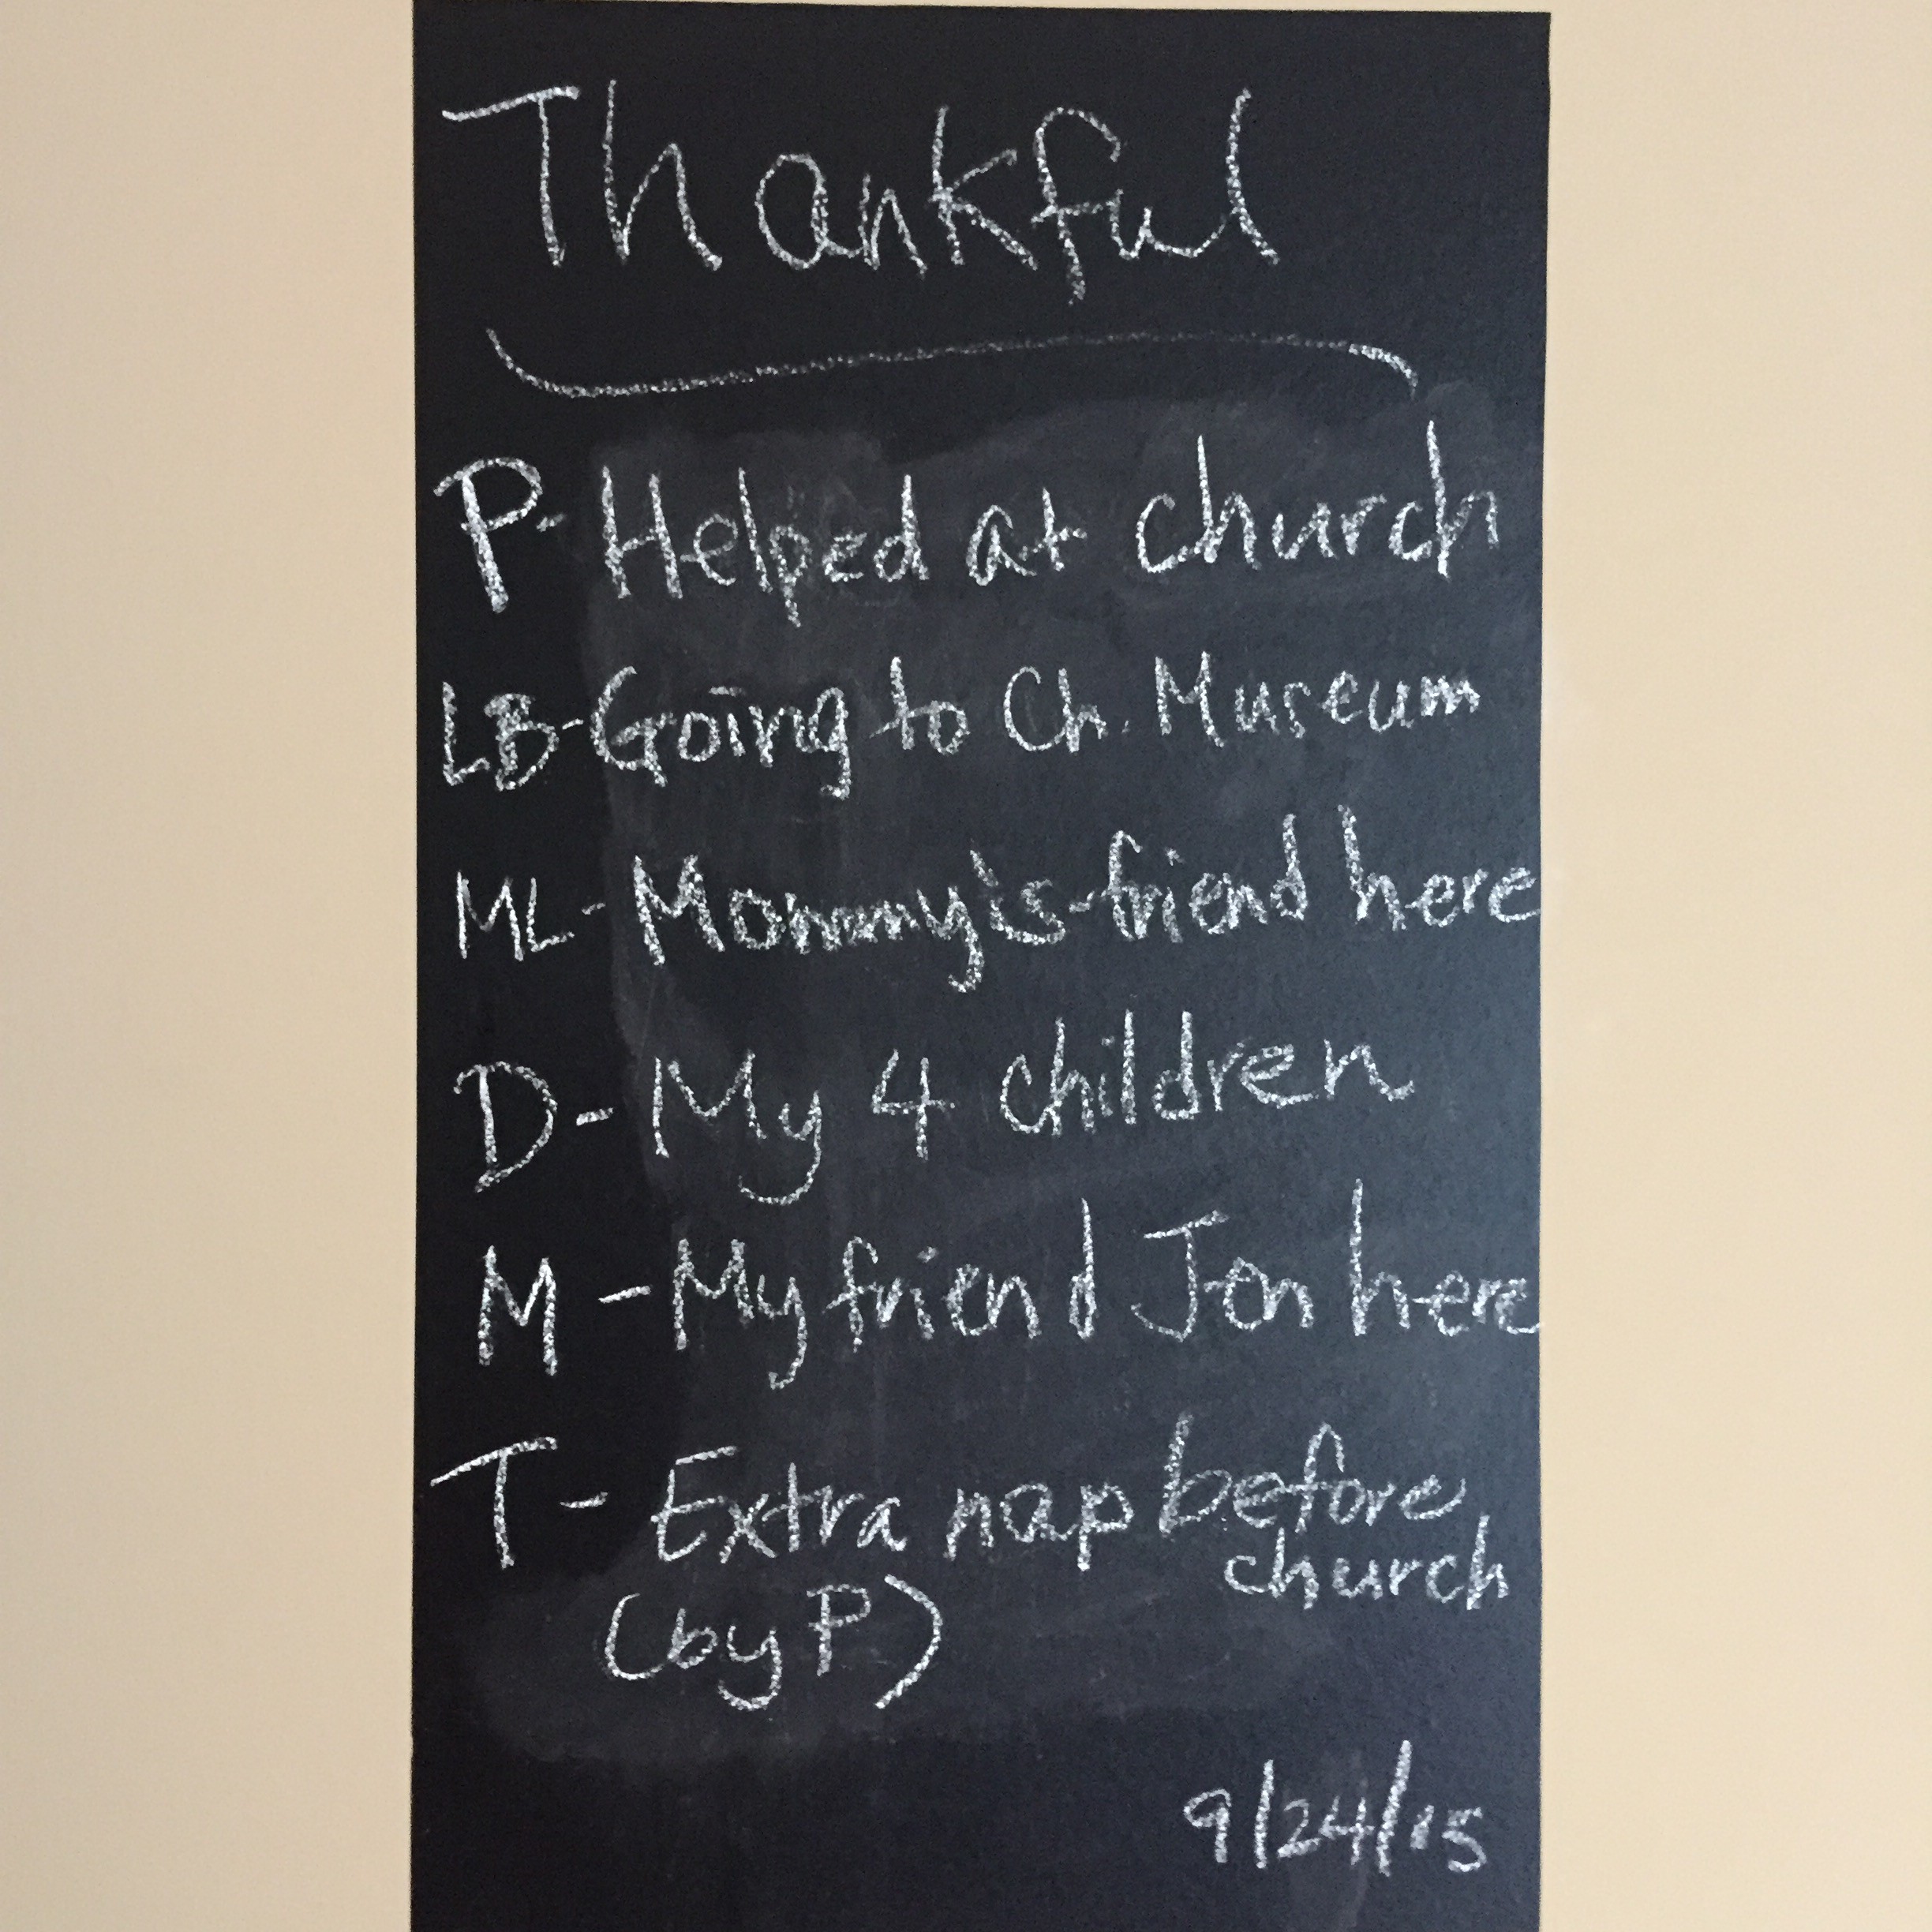 Thankful
P-Helped at church
LB-Going to Ch. Museum
ML-Mommy's friend here
D-My 4 children
M-My friend Jon here
T-Extra nap before
church
(by P)
9/24/15